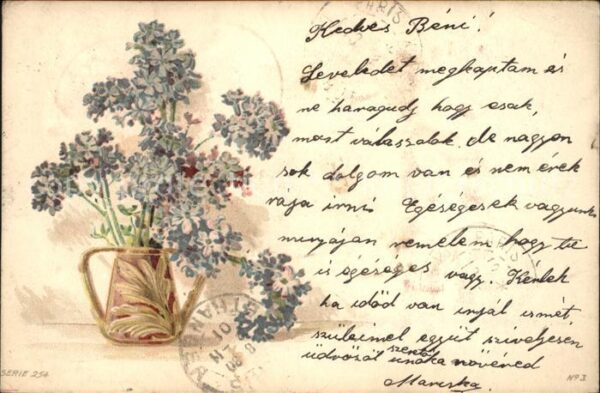 Kedves Béni!
Leveledet megkaptam és
ne haragudj hogy csak,
most válaszolok. de nagyon
sok dolgom van és nem érek
rája irni Egéségesek vagyunk
mnyájan remelem hogy te
is egéséges vagy. Kérlek
ha idöd van irjál ismét
szüleimel együt szivéljesen
üdvözöl szerető unoka növéred
Mariska.
SERIE 254
No 3